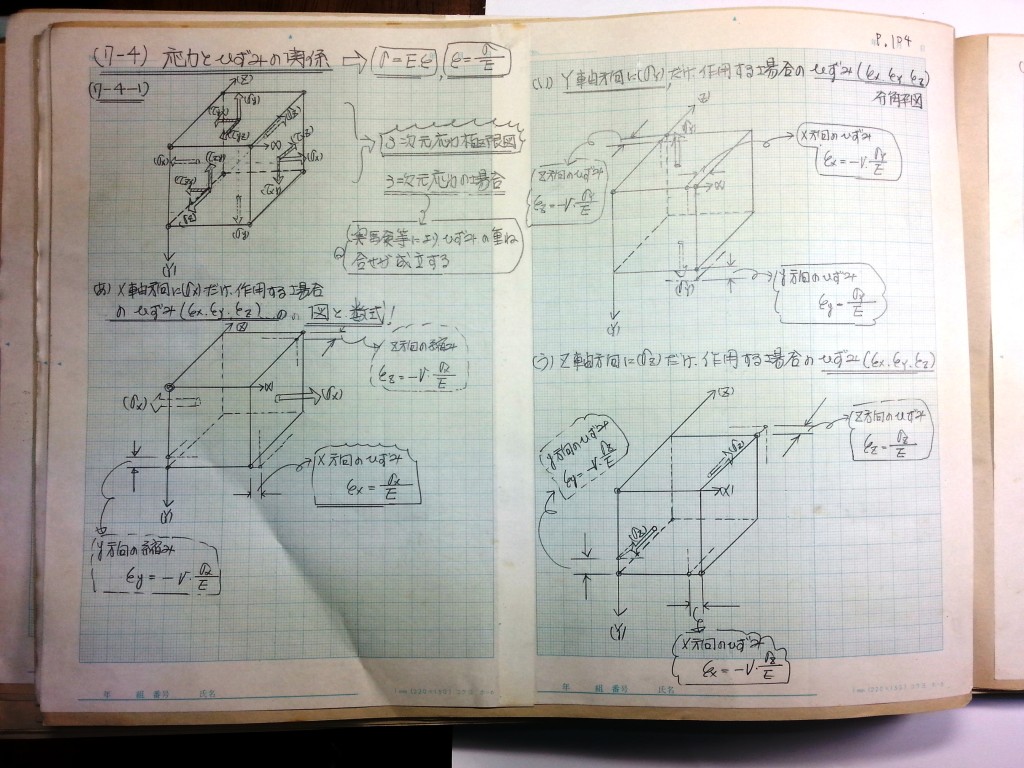 P. 184
(7-4) 応力とひずみの関係 ⇨ (σ=Eε), (ε=σ/E)
(7-4-1)
(Z)
(σy)
(τyz)
(X)
(σx)
(σz)
(σy)
(Y)
3=次元応力極限図
3=次元応力の場合
(実馬실等により ひずみの重ね
合せが成立する
あ) X軸方向に(σx)だけ、作用する場合
のひずみ(εx. εy. εz)の 図と数式!
(Z)
Z方向の縮み
εz = -ν・σx/E
(X)
(σx)
(σx)
X方向のひずみ
εx = σx/E
(Y)
y方向の縮み
εy = -ν・σx/E
(い) Y軸方向に(σy)だけ、作用する場合のひずみ(εx εy εz)
(Z)
(σy)
X方向のひずみ
εx = -ν・σy/E
Z方向のひずみ
εz = -ν・σy/E
(X)
(σy)
y方向のひずみ
εy = σy/E
(Y)
(う) Z軸方向に(σz)だけ、作用する場合のひずみ(εx. εy. εz)
(Z)
Z方向のひずみ
εz = σz/E
y方向のひずみ
εy = -ν・σz/E
(σz)
(X)
(σz)
(Y)
X方向のひずみ
εx = -ν・σz/E
年 組 番号 氏名
年 組 番号 氏名